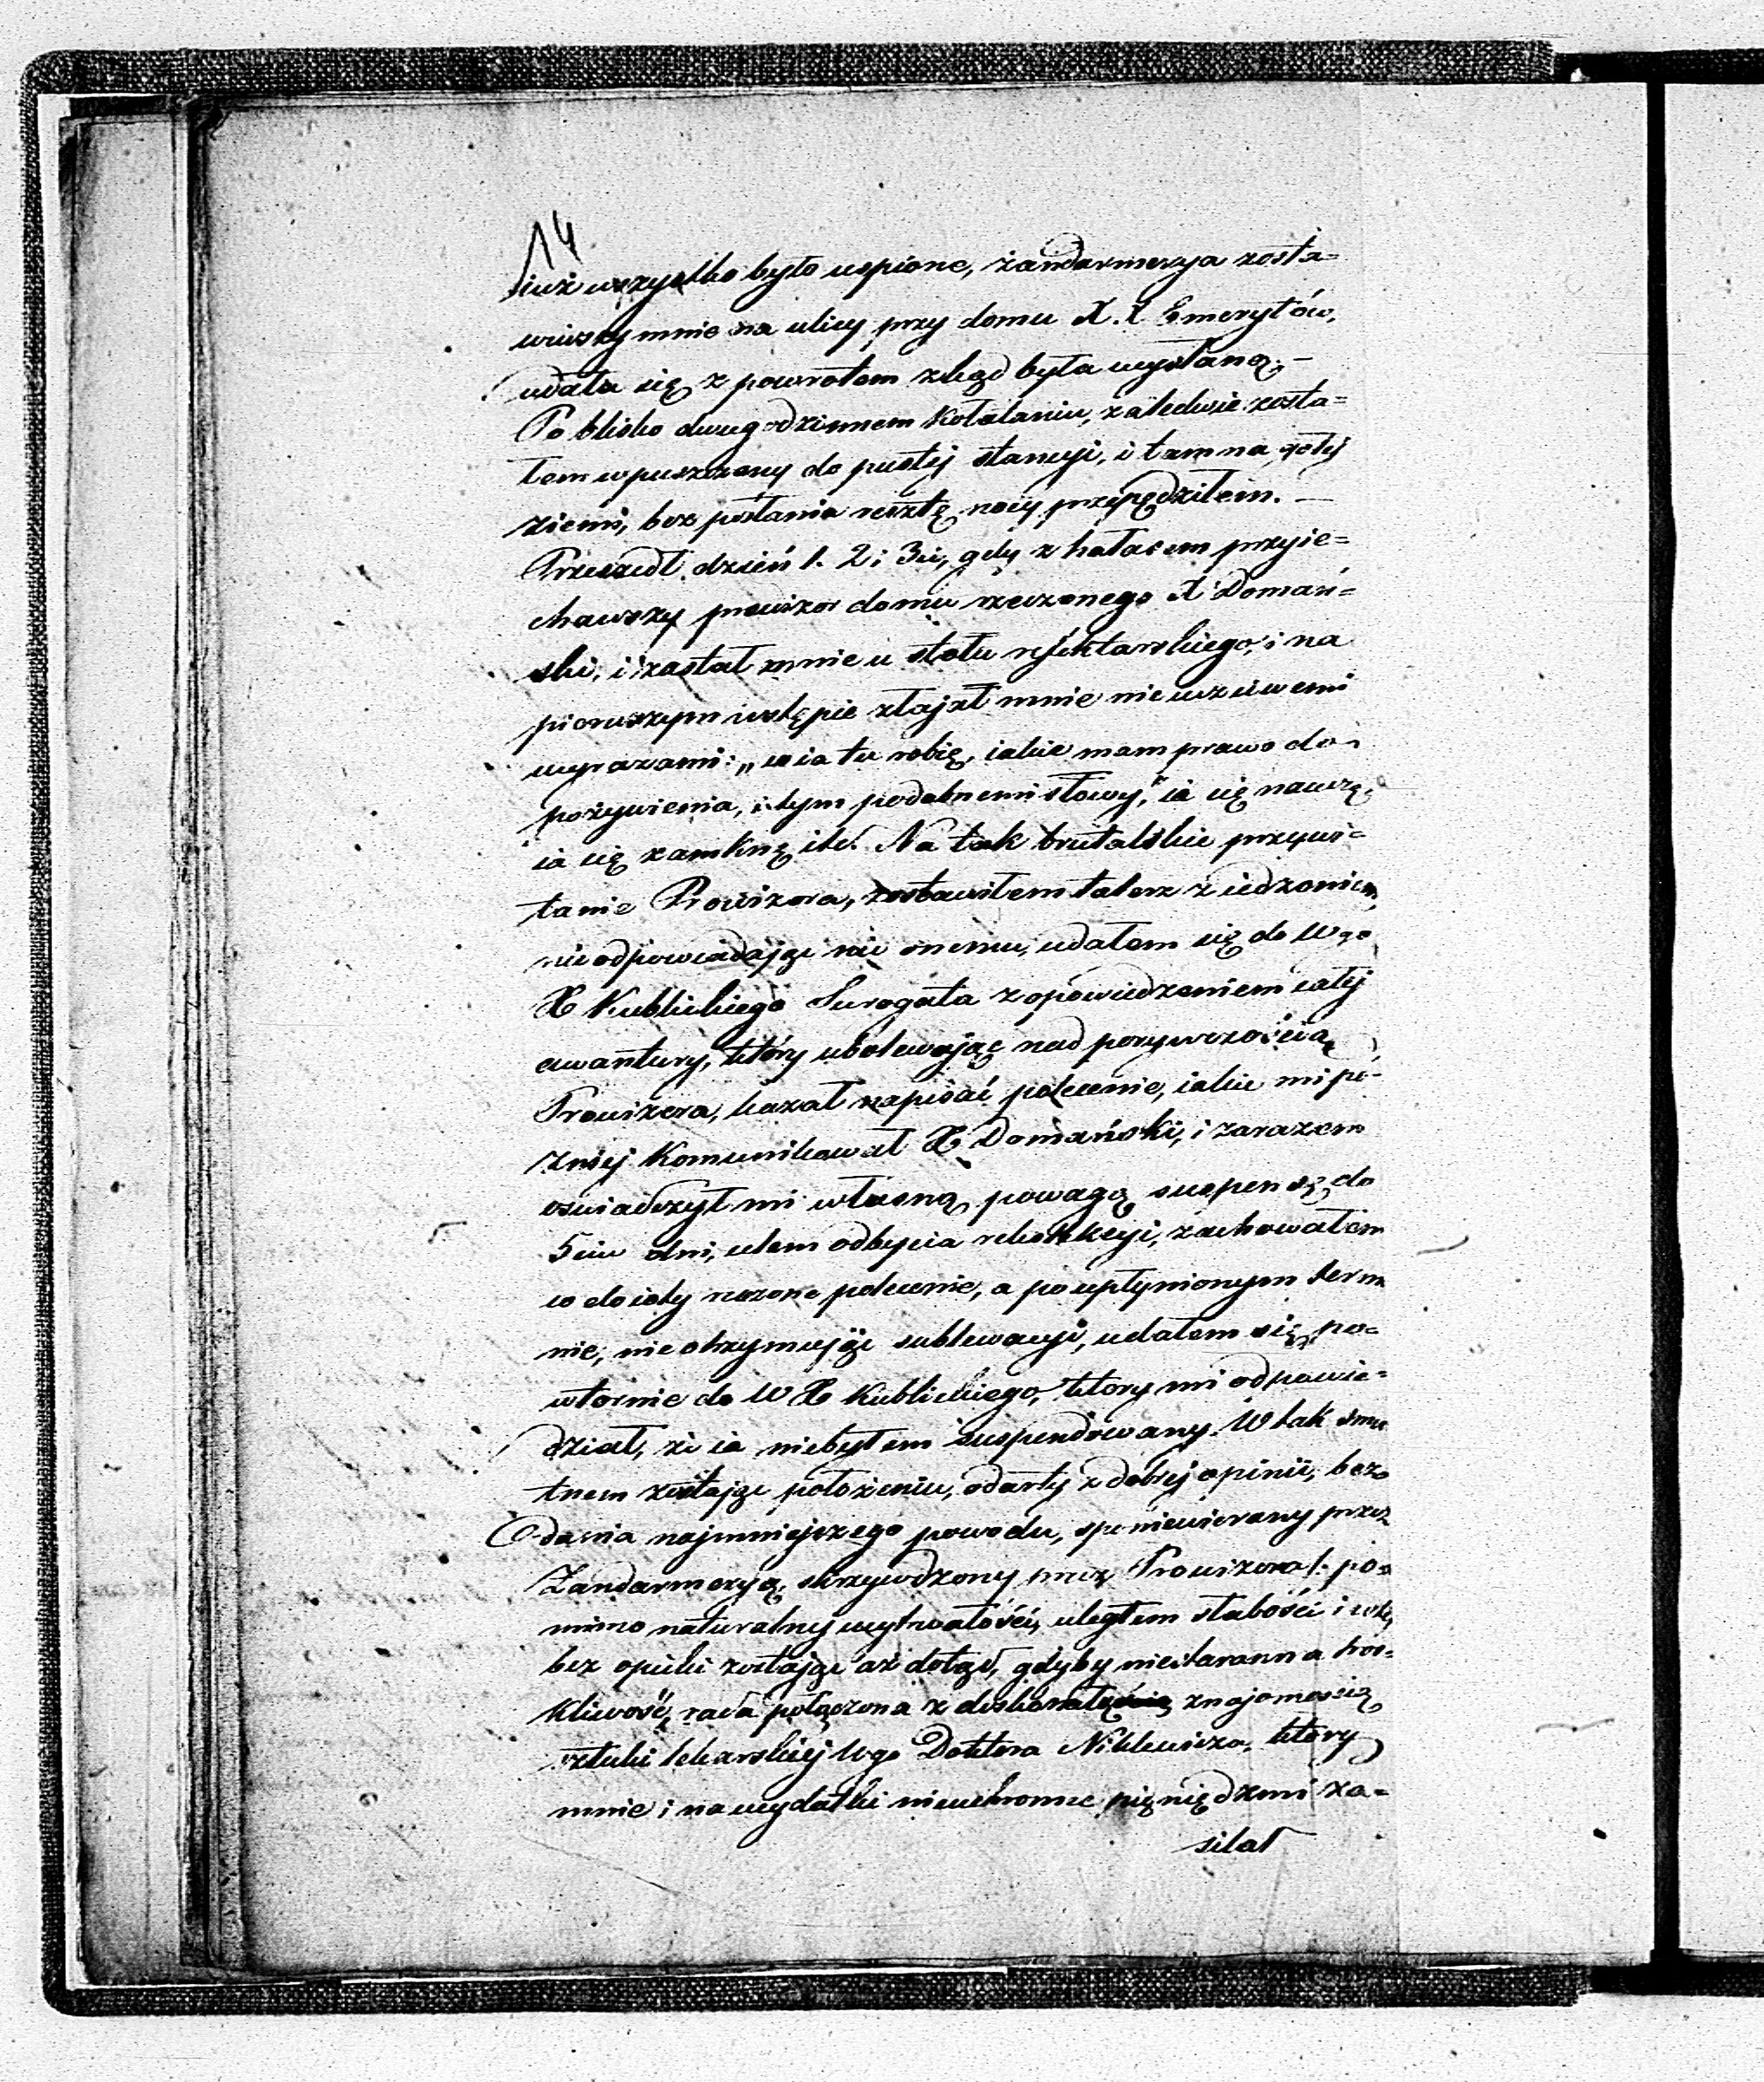 14
iuż wszystko było uspione, żandarmerya zosta=
wiwszy mnie na ulicy przy domu X.X Emerytów,
udała się z powrotem zkąd była wysłaną. —
Po blisko dwugodzinnem kołataniu, zaledwie zosta=
łem wpuszczony do pustéj stancyi, i tam na gołéj
ziemi, bez posłania resztę nocy przepędziłem. —
Przeszedł dzień 1. 2 i 3ci, gdy z hałasem przyie=
chawszy prowizor domu rzeczonego X Domań=
ski, i zastał mnie u stołu refektarskiego, i na
pierwszym wstępie złajał mnie nieuczciwemi
wyrazami: „co ia tu robię, iakie mam prawo do
pożywienia, i tym podobnemi słowy," ia cię nauczę,
ia cię zamknę itd. Na tak brutalskie przywi=
tanie Prowizora, zostawiłem talerz z iedzeniem,
nieodpowiadając nic onemu, udałem się do Wgo
X Kublickiego Surogata z opowiedzeniem całéj
awantury, który ubolewając nad porywczością
Prowizora, kazał napisać polecenie, iakie mi pó=
źniéj kommunikował X Domański, i zarazem
oświadczył mi własną powagą suspensę do
5ciu dni, celem odbycia rekolekcyi, zachowałem
co do ioty rzeczone polecenie, a po upłynionym termi
nie, nie otrzymując sublewacyi, udałem się po=
wtornie do W X Kublickiego, ktory mi odpowie=
dział, że ia niebyłem suspendowany. W tak smu
tnem zostając położeniu, odarty z dobréj opinii, bez
dania najmniejszego powodu, sponiewierany przez
Żandarmeryą, skrzywdzony przez Prowizora /: po=
mimo naturalnéj wytrwałości, uległem słabości i
bez opieki zostając aż dotąd, gdyby niestaranna tros=
kliwość, rada połączona z doskonałą znajomością
sztuki lekarskiéj Wgo Doktora Niklewicza, ktory
mnie i na wydatki nieuchronne pieniędzmi za=
silał